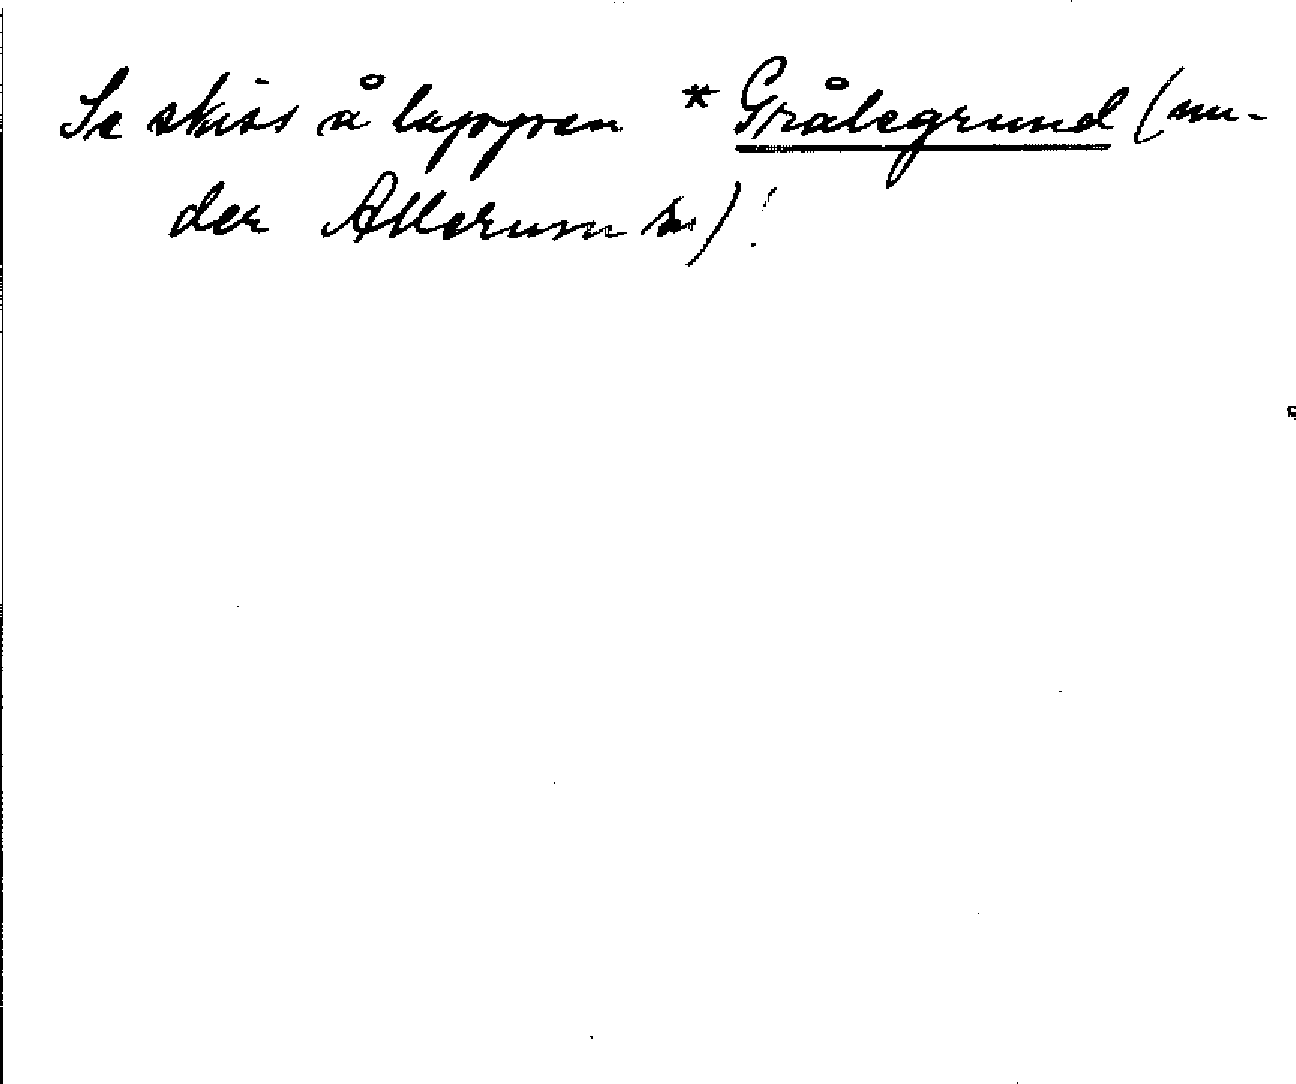 Se skiss å lappen * Gråtegrund (un-
der Allerum sn)!